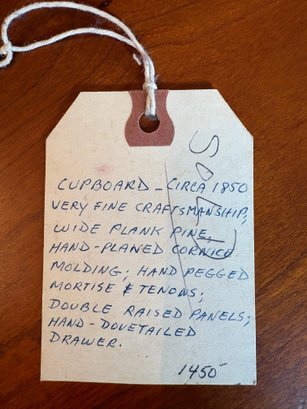 CUPBOARD - CIRCA 1850
VERY FINE CRAFTSMANSHIP;
WIDE PLANK PINE,
HAND-PLANED CORNICE
MOLDING; HAND PEGGED
MORTISE & TENONS;
DOUBLE RAISED PANELS;
HAND-DOVETAILED
DRAWER.
1450-
SOLD